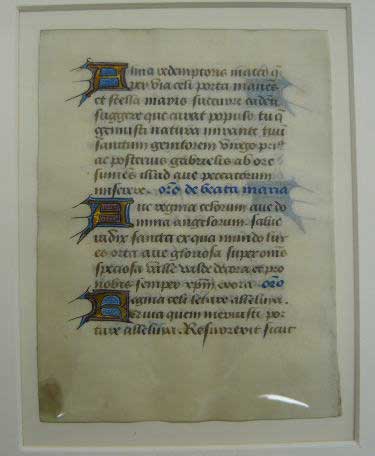 Alma redemptoris mater q̄
pervia celi porta manes
et stella maris succurre cadēti
surgere qui curat populo tu q̄
genuisti natura mirante tuū
sanctum genitorem virgo pri⁹
ac posterius gabrielis ab ore
sumēs illud ave peccatorum
miserere. orō de beata maria
Ave regina celorum ave do
mina angelorum. salve
radix sancta ex qua mundo lux
est orta ave gloriosa super om̄es
speciosa vale valde decora et pro
nobis semper xp̄m exora. orō
Regina celi letare alleluia.
quia quem meruisti por
tare alleluia. Resurrexit sicut